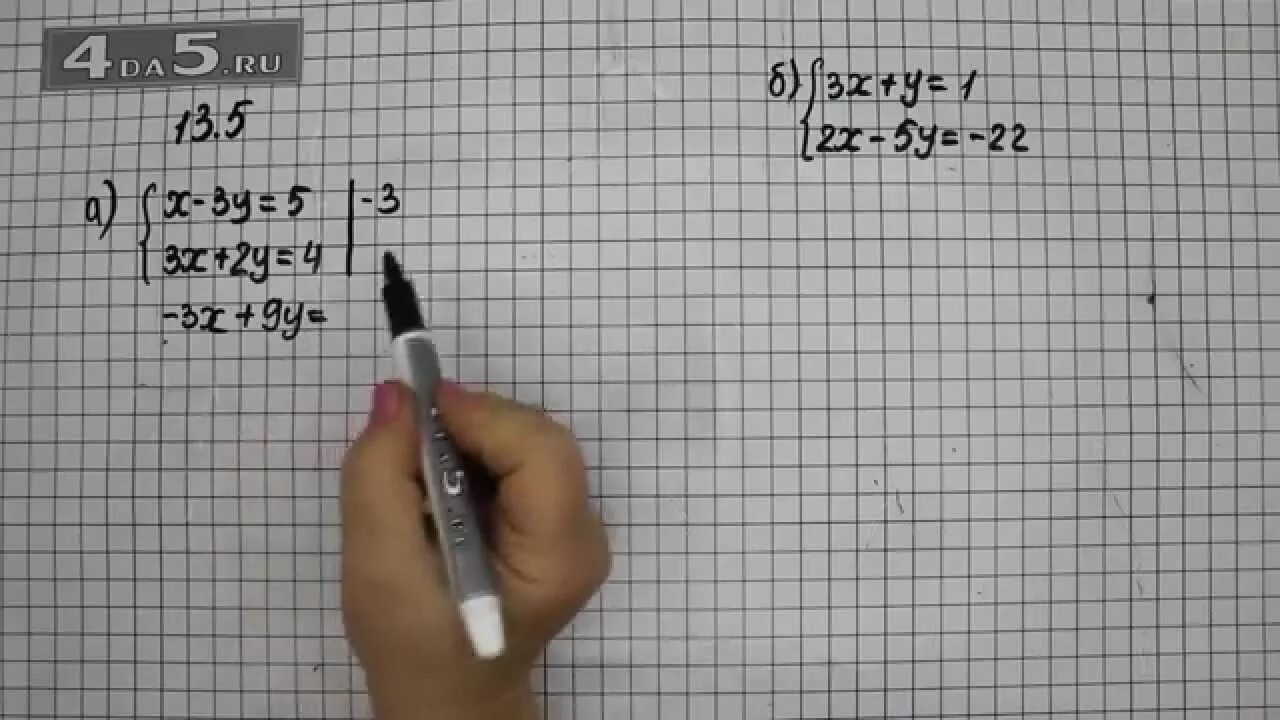 4DA5.RU
13.5
а) { x - 3y = 5 | -3
3x + 2y = 4
-3x + 9y =
б) { 3x + y = 1
2x - 5y = -22